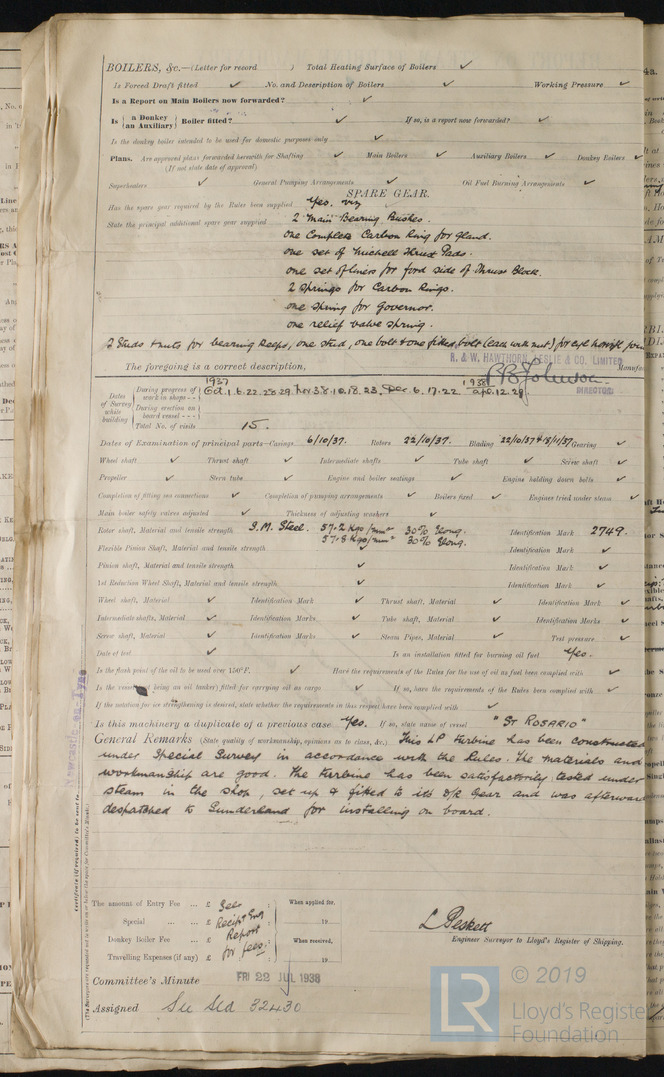 BOILERS, &c.—(Letter for record ) Total Heating Surface of Boilers ✓
Is Forced Draft fitted ✓ No. and Description of Boilers ✓ Working Pressure ✓
Is a Report on Main Boilers now forwarded? ✓
Is {a Donkey / an Auxiliary} Boiler fitted? ✓ If so, is a report now forwarded? ✓
Is the donkey boiler intended to be used for domestic purposes only ✓
Plans. Are approved plans forwarded herewith for Shafting ✓ Main Boilers ✓ Auxiliary Boilers ✓ Donkey Boilers ✓
(If not state date of approval)
Superheaters ✓ General Pumping Arrangements ✓ Oil Fuel Burning Arrangements ✓
SPARE GEAR.
Has the spare gear required by the Rules been supplied Yes. viz
State the principal additional spare gear supplied 2 Main Bearing Bushes.
one Complete Carbon Ring for Gland.
one set of Michell Thrust Pads.
one set of liners for ford side of Thrust Block.
2 Springs for Carbon Rings.
one Spring for Governor.
one relief valve spring.
2 Studs & nuts for bearing keeps, one stud, one bolt & one fitted bolt (each with nut) for
R. & W. HAWTHORN, LESLIE & CO. LIMITED
The foregoing is a correct description,
DIRECTOR
Dates of Survey while building
During progress of work in shops - - 1937 Oct. 1. 6. 22. 28. 29. Nov 3. 8. 10. 18. 23. Dec. 6. 17. 22 1938 Apl. 12. 29.
During erection on board vessel - - -
Total No. of visits 15.
Dates of Examination of principal parts—Casings 6/10/37. Rotors 22/10/37. Blading 22/10/37 & 18/11/37 Gearing ✓
Wheel shaft ✓ Thrust shaft ✓ Intermediate shafts ✓ Tube shaft ✓ Screw shaft ✓
Propeller ✓ Stern tube ✓ Engine and boiler seatings ✓ Engine holding down bolts ✓
Completion of fitting sea connections ✓ Completion of pumping arrangements ✓ Boilers fixed ✓ Engines tried under steam ✓
Main boiler safety valves adjusted ✓ Thickness of adjusting washers ✓
Rotor shaft, Material and tensile strength S.M. Steel. 57.2 Kgo/mm² 30% Elong. Identification Mark 2749.
57.8 Kgo/mm² 30% Elong.
Flexible Pinion Shaft, Material and tensile strength ✓ Identification Mark ✓
Pinion shaft, Material and tensile strength ✓ Identification Mark ✓
1st Reduction Wheel Shaft, Material and tensile strength ✓ Identification Mark ✓
Wheel shaft, Material ✓ Identification Mark ✓ Thrust shaft, Material ✓ Identification Mark ✓
Intermediate shafts, Material ✓ Identification Marks ✓ Tube shaft, Material ✓ Identification Marks ✓
Screw shaft, Material ✓ Identification Marks ✓ Steam Pipes, Material ✓ Test pressure ✓
Date of test ✓ Is an installation fitted for burning oil fuel Yes.
Is the flash point of the oil to be used over 150°F. ✓ Have the requirements of the Rules for the use of oil as fuel been complied with ✓
Is the vessel being an oil tanker) fitted for carrying oil as cargo ✓ If so, have the requirements of the Rules been complied with ✓
If the notation for ice strengthening is desired, state whether the requirements in this respect have been complied with ✓
Is this machinery a duplicate of a previous case Yes. If so, state name of vessel "ST ROSARIO"
General Remarks (State quality of workmanship, opinions as to class, &c.) This LP turbine has been constructed
under Special Survey in accordance with the Rules. The materials and
workmanship are good. The turbine has been satisfactorily tested under
steam in the shop, set up & fitted to its D/R Gear and was afterward
despatched to Sunderland for installing on board.
Newcastle-on-Tyne
Certificate (if required) to be sent to
(The Surveyors are requested not to write on or below the space for Committee's Minute.)
The amount of Entry Fee ... £ See : : When applied for,
Special ... ... £ Recipt Eng : 19
Donkey Boiler Fee ... £ Report : When received,
Travelling Expenses (if any) £ for fees. : 19
L Peskett
Engineer Surveyor to Lloyd's Register of Shipping.
Committee's Minute FRI 22 JUL 1938
Assigned See Sld 32430
LR
© 2019
Lloyd's Register
Foundation